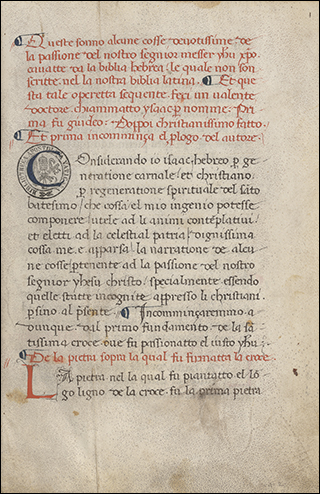 Queste sonno alcune cosse devotissime de
la passione del nostro segnior messer yhu xpo.
cavatte da la biblia hebrea. le quale non son
scritte. nel la nostra biblia latina. Et que
sta tale operetta sequente. feci un valente
doctore. chiammatto ysaac p nomme. Pri
ma fu giudeo. Doppoi christianissimo fatto.
Et prima incominnça el plogo del autore.
Onsiderando io isaac. hebreo p ge
neratione carnale. et christiano.
p regeneratione spirituale del sato
batesimo/ che cossa el mio ingenio potesse
componere utele ad li animi contemplativi
et eletti ad la celestial patria/ dignissima
cossa me e apparsa la narratione de alcu
ne cosse ptenente ad la passione del nostro
segnior yhesu christo/ specialmente essendo
quelle statte incognite appresso li christiani
psino al psente. Incommingaremmo a
dunque dal primo fundamento de la sa
tissima croce due fu passionatto el iusto yhu.
De la pietra sopra la qual fu furmatta la croce.
LA pietra. nel la qual fu piantatto el lo
go ligno de la croce. fu la prima pietra